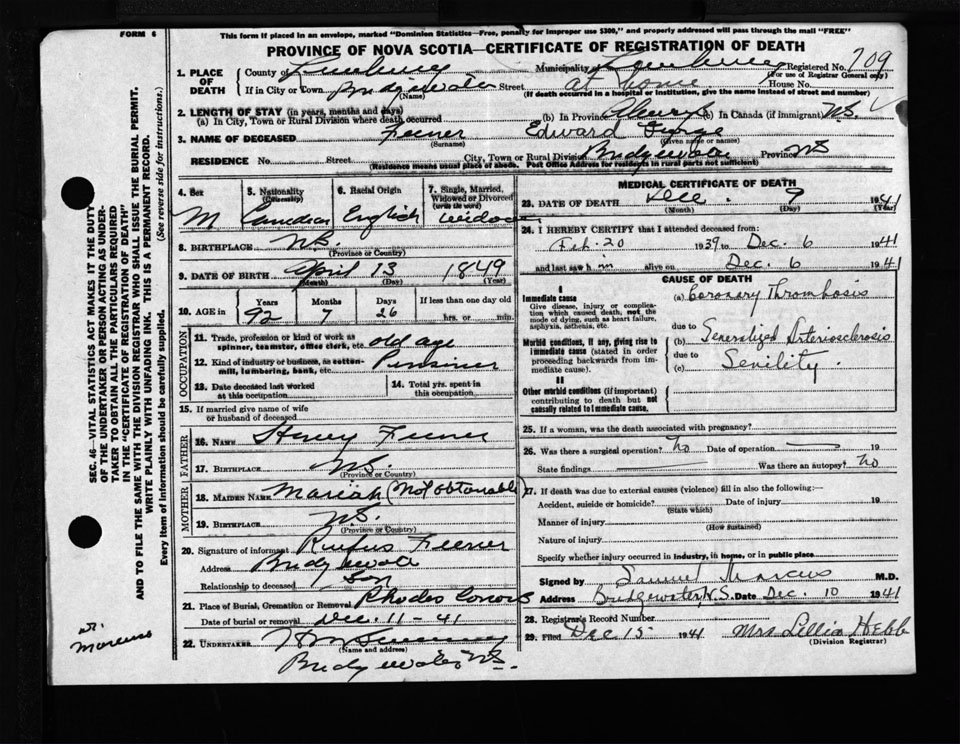 This form if placed in an envelope, marked "Dominion Statistics—Free, penalty for improper use $300," and properly addressed will pass through the mail "FREE"
FORM 6
PROVINCE OF NOVA SCOTIA—CERTIFICATE OF REGISTRATION OF DEATH
1. PLACE OF DEATH County of Lunenburg Municipality Lunenburg Registered No. 709
(For use of Registrar General only)
If in City or Town Bridgewater Street at home House No.
(Name) (If death occurred in a hospital or institution, give the name instead of street and number)
2. LENGTH OF STAY (in years, months and days)
(a) In City, Town or Rural Division where death occurred (b) In Province Always (c) In Canada (if immigrant) N.S.
3. NAME OF DECEASED Feener Edward George
(Surname) (Given name or names)
RESIDENCE No. Street City, Town or Rural Division Bridgewater Province NS
(Residence means usual place of abode. Post Office Address for residents in rural parts not sufficient)
4. Sex 5. Nationality (Citizenship) 6. Racial Origin 7. Single, Married, Widowed or Divorced (write the word)
M Canadian English widower
8. BIRTHPLACE N.S.
(Province or Country)
9. DATE OF BIRTH April 13 1849
(Month) (Day) (Year)
10. AGE in Years Months Days If less than one day old
92 7 26 hrs. or min.
OCCUPATION
11. Trade, profession or kind of work as spinner, teamster, office clerk, etc. old age
12. Kind of industry or business, as cotton-mill, lumbering, bank, etc. Pensioner
13. Date deceased last worked at this occupation
14. Total yrs. spent in this occupation
15. If married give name of wife or husband of deceased
FATHER
16. NAME Henry Feener
17. BIRTHPLACE N.S.
(Province or Country)
MOTHER
18. MAIDEN NAME Mariah (Not obtainable)
19. BIRTHPLACE N.S.
(Province or Country)
20. Signature of informant Rufus Feener
Address Bridgewater
Relationship to deceased Son
21. Place of Burial, Cremation or Removal Rhodes Corner
Date of burial or removal Dec. 11-41
22. UNDERTAKER
(Name and address)
Bridgewater NS.
MEDICAL CERTIFICATE OF DEATH
23. DATE OF DEATH Dec. 9 1941
(Month) (Day) (Year)
24. I HEREBY CERTIFY that I attended deceased from:
Feb. 20 1939 to Dec. 6 1941
and last saw him alive on Dec. 6 1941
CAUSE OF DEATH
I
Immediate cause (a) Coronary Thrombosis
Give disease, injury or complication which caused death, not the mode of dying, such as heart failure, asphyxia, asthenia, etc.
due to
Morbid conditions, if any, giving rise to immediate cause (stated in order proceeding backwards from immediate cause).
(b) Generalized Arteriosclerosis
due to
(c) Senility.
II
Other morbid conditions (if important) contributing to death but not causally related to immediate cause.
25. If a woman, was the death associated with pregnancy?
26. Was there a surgical operation? no Date of operation 19
State findings Was there an autopsy? no
27. If death was due to external causes (violence) fill in also the following:—
Accident, suicide or homicide? Date of injury 19
(State which)
Manner of injury
(How sustained)
Nature of injury
Specify whether injury occurred in industry, in home, or in public place
Signed by Samuel Marcus M.D.
Address Bridgewater, N.S. Date Dec. 10 1941
28. Registrar's Record Number
29. Filed Dec 15 1941 Mrs Lillia Hebb
(Division Registrar)
SEC. 46—VITAL STATISTICS ACT MAKES IT THE DUTY
OF THE UNDERTAKER OR PERSON ACTING AS UNDER-
TAKER TO OBTAIN ALL THE PARTICULARS REQUIRED
IN THE "CERTIFICATE OF REGISTRATION OF DEATH"
AND TO FILE THE SAME WITH THE DIVISION REGISTRAR WHO SHALL ISSUE THE BURIAL PERMIT.
WRITE PLAINLY WITH UNFADING INK. THIS IS A PERMANENT RECORD.
Every item of Information should be carefully supplied. (See reverse side for instructions.)
Dr. Marcus